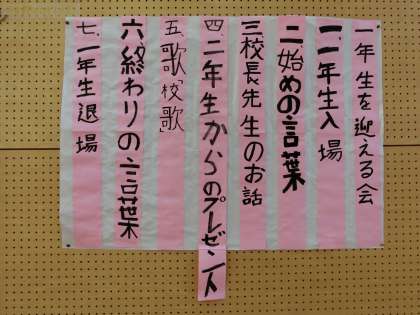 一年生を迎える会
一、一年生入場
二、始めの言葉
三校長先生のお話
四、二年生からのプレゼント
五、歌「校歌」
六、終わりの言葉
七、一年生退場